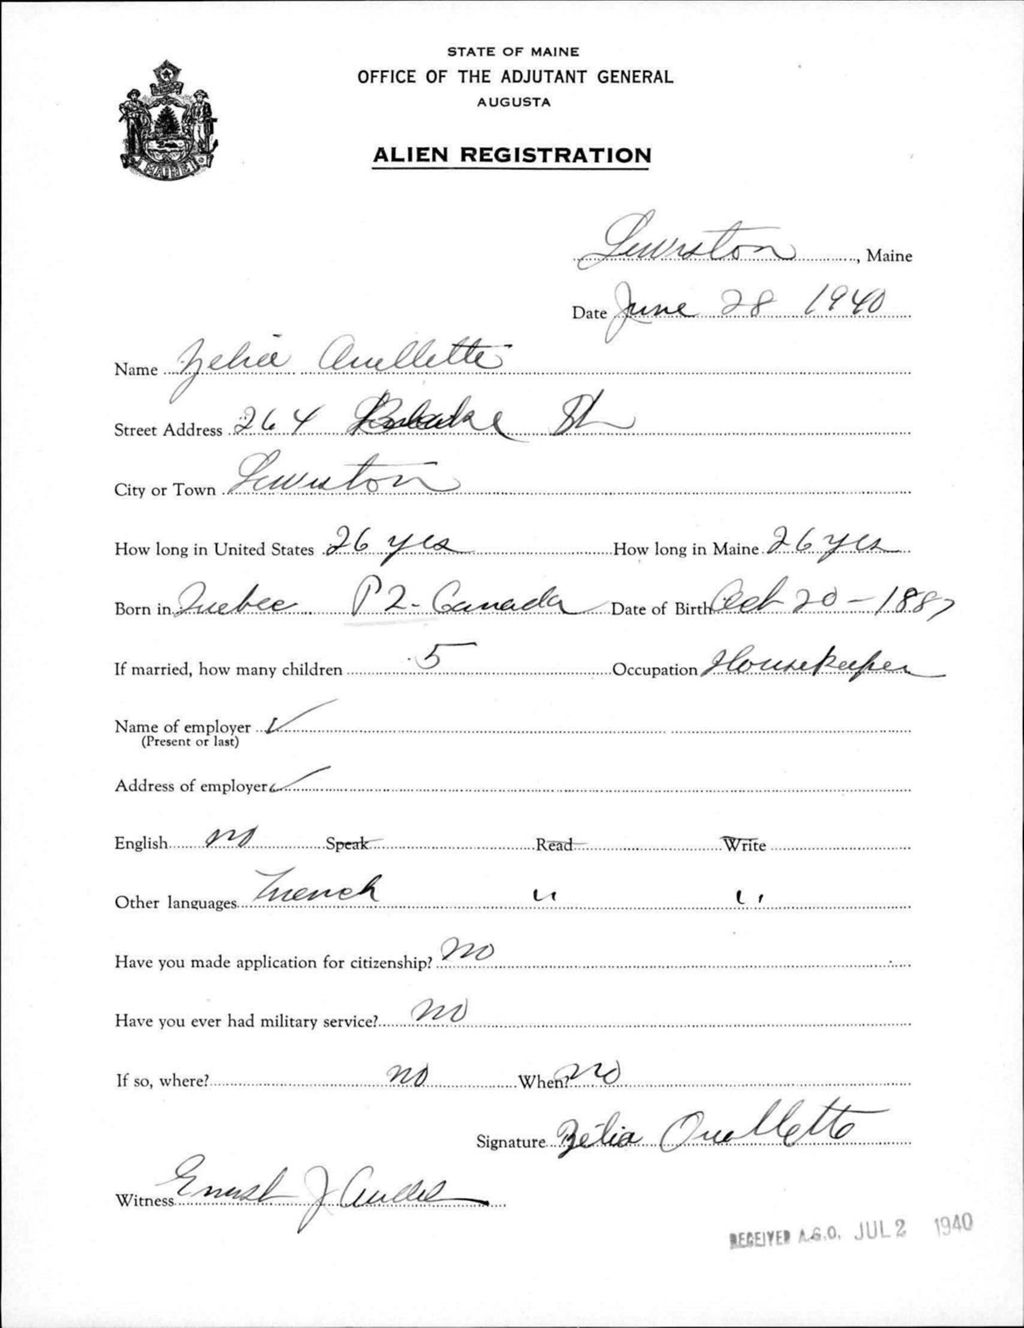 STATE OF MAINE
OFFICE OF THE ADJUTANT GENERAL
AUGUSTA
MAINE
ALIEN REGISTRATION
Lewiston, Maine
Date June 28 1940
Name Zelia Ouellette
Street Address 264 Blake St
City or Town Lewiston
How long in United States 26 yrs How long in Maine 26 yrs
Born in Quebec P2. Canada Date of Birth Oct 20 - 1887
If married, how many children 5 Occupation Housekeeper
Name of employer ✓
(Present or last)
Address of employer ✓
English no Speak Read Write
Other languages French " "
Have you made application for citizenship? No
Have you ever had military service? No
If so, where? no When? No
Signature Zelia Ouellette
Witness Ernest J Ouellette
RECEIVED A.G.O. JUL 2 1940